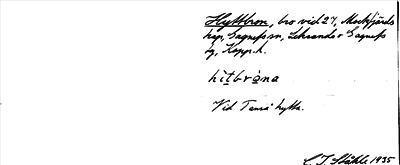 Hyttbron, bro vid 27, Mockfjärds
kap, Gagnefs sn, Leksands o Gagnefs
tg, Kopp. l.
hìt̀bròna
Vid Tanså hytta.
C. I. Ståhle 1935